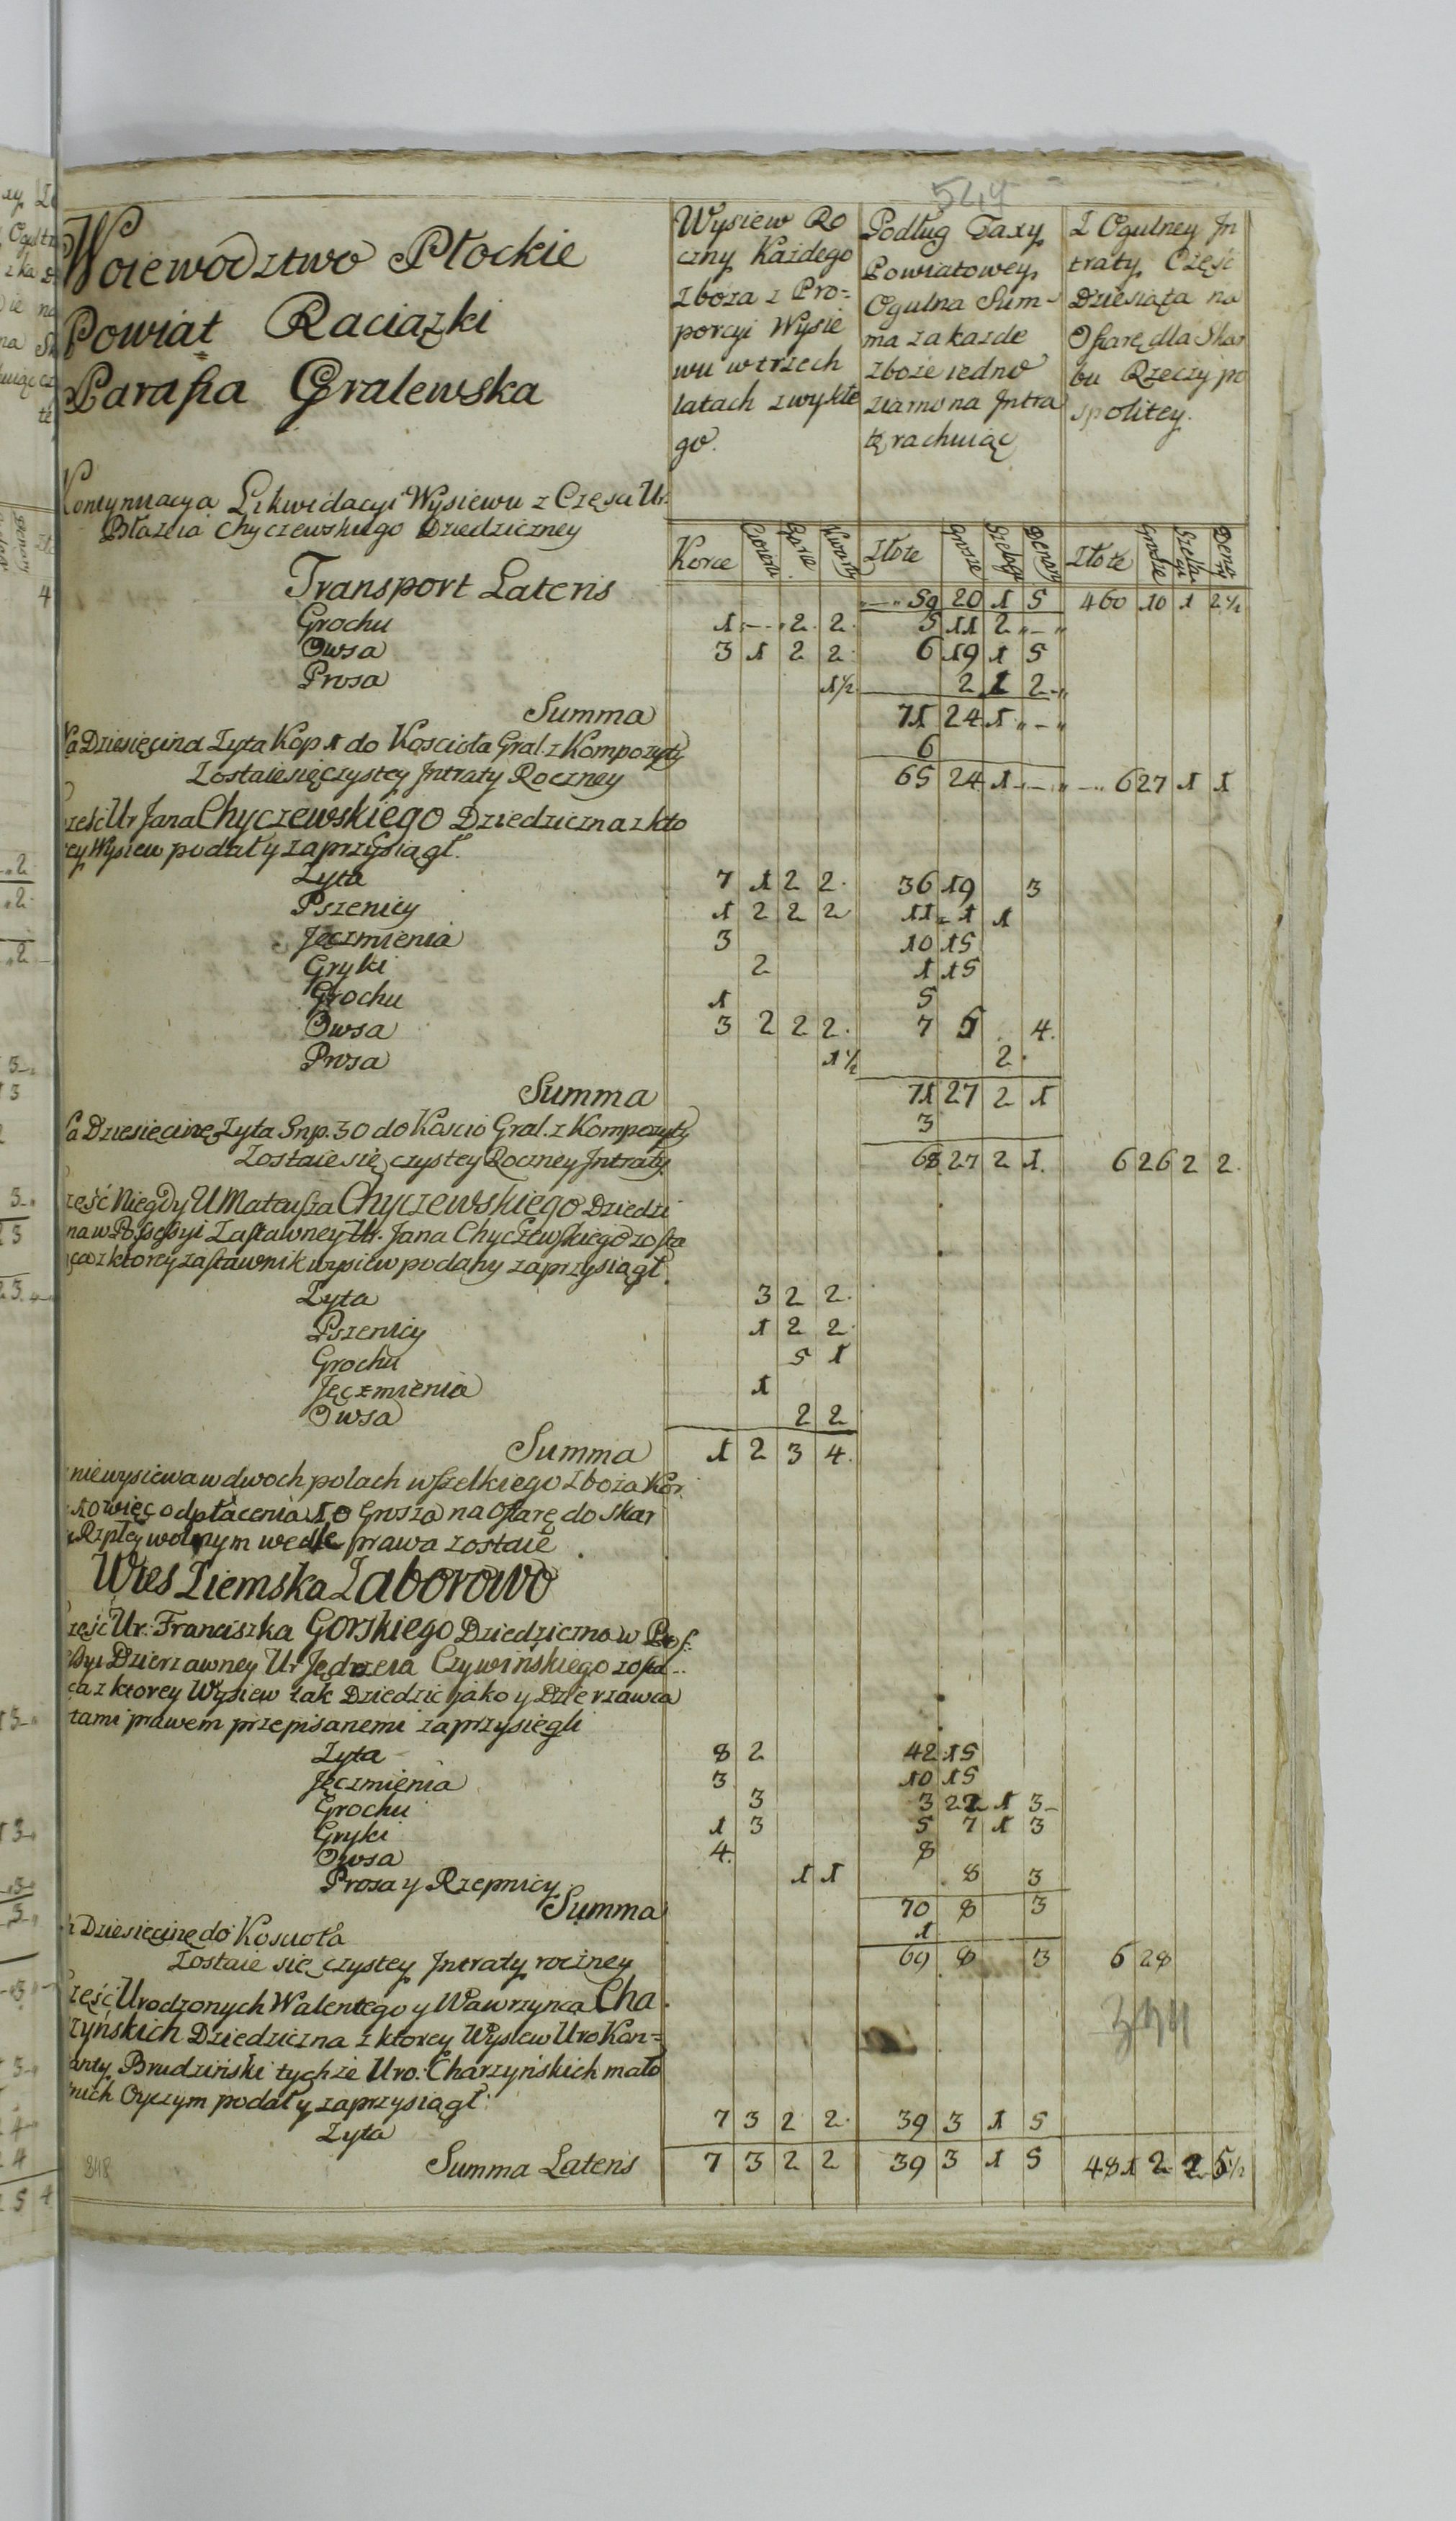 549
Woiewodztwo Płockie
Powiat Raciązki
Parafia Gralewska
Wysiew Ro
czny Każdego
Zboza z Pro=
porcyi Wysie
wu w trzech
latach zwykłe
go.
Podług Taxy
Powiatowey
Ogulna Sum-
ma za kazde
zboże iedno
ziarno na Intra
tę rachuiąc
Z Ogulney In
traty Część
Dziesiąta na
Ofiarę dla Skar
bu Rzeczy po
spolitey.
Kontynuacya Likwidacyi Wysiewu z Częsci Ur.
Błażeia Chyczewskiego Dziedziczney
Korce Garce Kwarty Złote Grosze Szelągi Denary Złote Grosze Szelągi Denary
Transport Lateris „—„ 59 20 1 5 460 10 1 2½
Grochu 1 -- „ 2. 2. 5 11 2 „—„
Owsa 3 1 2 2. 6 19 1 5
Prosa 1½ 2 1 2 -„
Summa 71 24 1 „—„
Za Dziesięcina Zyta Kop 1 do Kościoła Gral. z Kompozyty 6
Zostaie się czystey Intraty Roczney 65 24 1 --„ -„ 6 27 1 1
Cześć Ur Jana Chyczewskiego Dziedziczna z kto
rey Wysiew podały zaprzysiągł.
Zyta 7 1 2 2. 36 19 3
Pszenicy 1 2 2 2 11 1 1
Jęczmienia 3 10 15
Gryki 2 1 15
Grochu 1 5
Owsa 3 2 2 2. 7 5 4.
Prosa 1½ 2.
Summa 71 27 2 1
Za Dziesięcinę Zyta Snp. 30 do Koscio Gral. z Kompozyty 3
Zostaie się czystey Roczney Intraty 68 27 2 1. 6 26 2 2.
Cześć Niegdy U Mateusza Chyczewskiego Dziedzi
na w Possessyi Zastawney Ur. Jana Chyczewskiego zosta
ąca z ktorey zastawnik wysiew podany zaprzysiągł.
Zyta 3 2 2.
Pszenicy 1 2 2.
Grochu 5 1
Jęczmienia 1
Owsa 2 2
Summa 1 2 3 4.
niewysiewa w dwoch polach wszelkiego zboża Kor.
10 więc od płacenia 10 Grosza na Ofiarę do Skar
Rzpltey wolnym wedle prawa zostaie.
Wies Ziemska Zaborowo
Część Ur: Franciszka Gorskiego Dziedziczna w Pos
essyi Dzierzawney Ur Jędrzeia Czywińskiego zosta-
ca z ktorey Wysiew tak Dziedzic jako y Dzierzawca
tami prawem przepisanemi zaprzysiegli
Zyta 8 2 42 15
Jęczmienia 3 10 15
Grochu 3 3 22 1 3-
Gryki 1 3 5 7 1 3
Owsa 4. 8
Prosa y Rzepnicy 1 1 8 3
Summa 70 8 3
Dziesięcinę do Koscioła 1
Zostaie się czystey Intraty roczney 69 8 3 6 28
Część Urodzonych Walentego y Wawrzynca Cha
rzyńskich Dziedziczna z ktorey Wysiew Uro Kon=
anty Brudziński tychże Uro: Charzyńskich mało
nich Oyczym podały zaprzysiągł:
Zyta 7 3 2 2. 39 3 1 5
Summa Lateris 7 3 2 2 39 3 1 5 481 2 2 5½
848